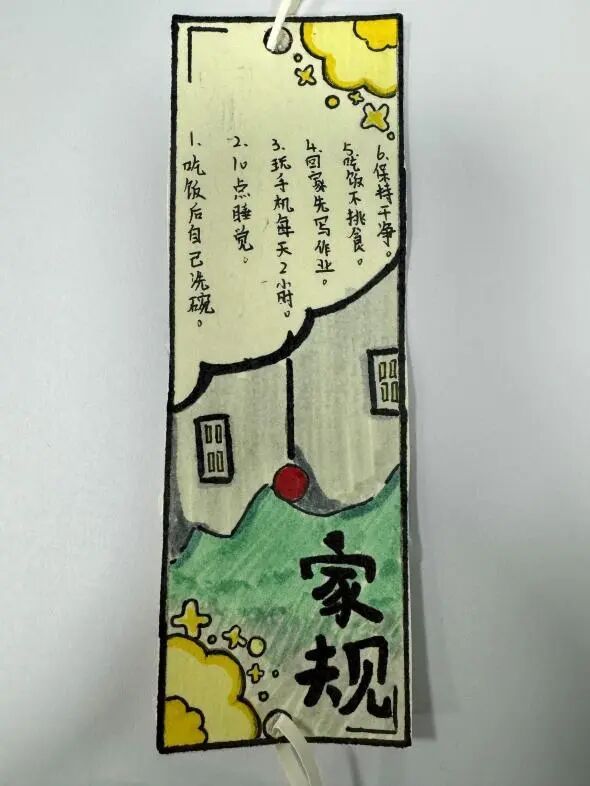 1.吃饭后自己洗碗。
2.10点睡觉。
3.玩手机每天2小时。
4.回家先写作业。
5.吃饭不挑食。
6.保持干净。
家规